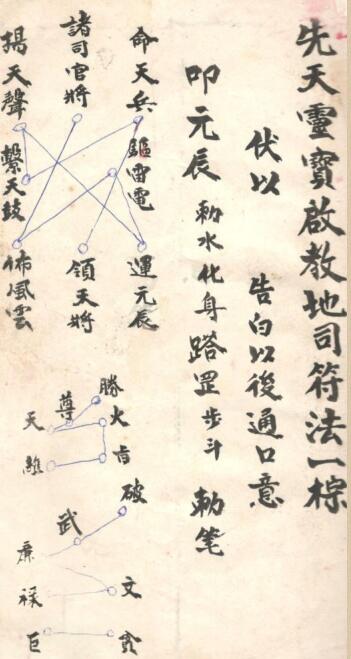 先天靈寶啟教地司符法一棕
伏以 告白以後通口意
叩元辰 勅水化身 踏罡步斗 勅笔
命天兵 驅雷電 運元辰
諸司官將 領天將
揚天聲 繫天鼓 佈風雲
勝
尊 火
天
維
破
武
廉
文
祿
巨 貪